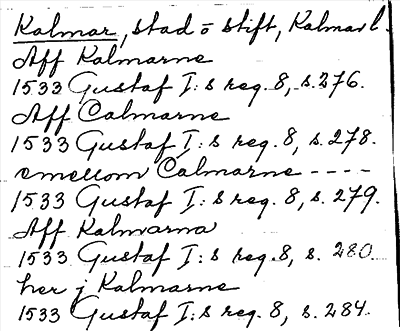 Kalmar, stad o stift, Kalmar l.
Aff Kalmarne
1533 Gustaf I:s reg. 8, s. 276.
Aff Calmarne
1533 Gustaf I:s reg. 8, s. 278.
emellom Calmarne ----
1533 Gustaf I:s reg. 8, s. 279.
Aff Kalmarna
1533 Gustaf I:s reg. 8, s. 280.
her j Kalmarne
1533 Gustaf I:s reg. 8, s. 284.